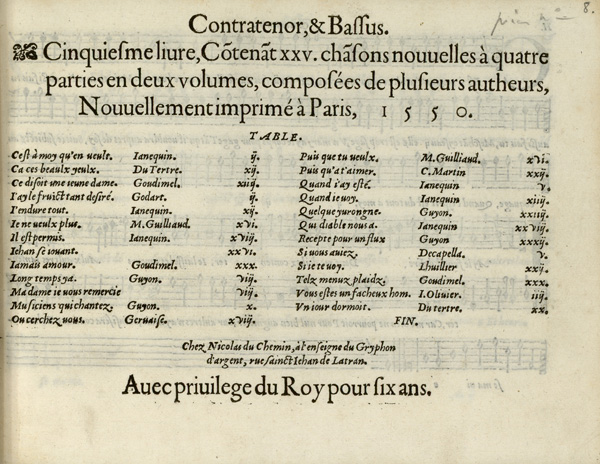 8.
Contratenor, & Bassus.
Cinquiesme liure, Cõtenãt xxv. chãsons nouuelles à quatre
parties en deux volumes, composées de plusieurs autheurs,
Nouuellement imprimé à Paris, 1550.
TABLE.
C'est à moy qu'en veult. Ianequin. ij.
Ca ces beaulx yeulx. Du Tertre. xij.
Ce disoit vne ieune dame. Goudimel. xiij.
I'ay le fruict tant desiré. Godart. ij.
I'endure tout. Ianequin. xij.
Ie ne veulx plus. M. Guilliaud. xvi.
Il est permis. Ianequin. xviij.
Iehan se iouant. xxvi.
Iamais amour. Goudimel. xxx.
Long temps ya. Guyon. viij.
Ma dame ie vous remercie viij.
Musiciens qui chantez. Guyon. x.
Ou cerchez vous. Geruaise. xviij.
Puis que tu veulx. M. Guilliaud. xvi.
Puis qu'at'aimer. C. Martin xxij.
Quand i'ay esté. Ianequin v.
Quand ie voy. Ianequin xiiij.
Quelque yurongne. Guyon. xxiiij.
Qui diable nous a. Ianequin xxviij.
Recepte pour un flux Guyon xxxij.
Si vous auiez. Decapella. v.
Si ie te voy. Lhuillier xxij.
Telz menuz plaidz. Goudimel. xxx.
Vous estes un facheux hom. I. Oliuier. iij.
Vn iour dormoit. Du tertre. xx.
FIN.
Chez Nicolas du Chemin, à l'enseigne du Gryphon
d'argent, rue sainct Iehan de Latran.
Auec priuilege du Roy pour six ans.